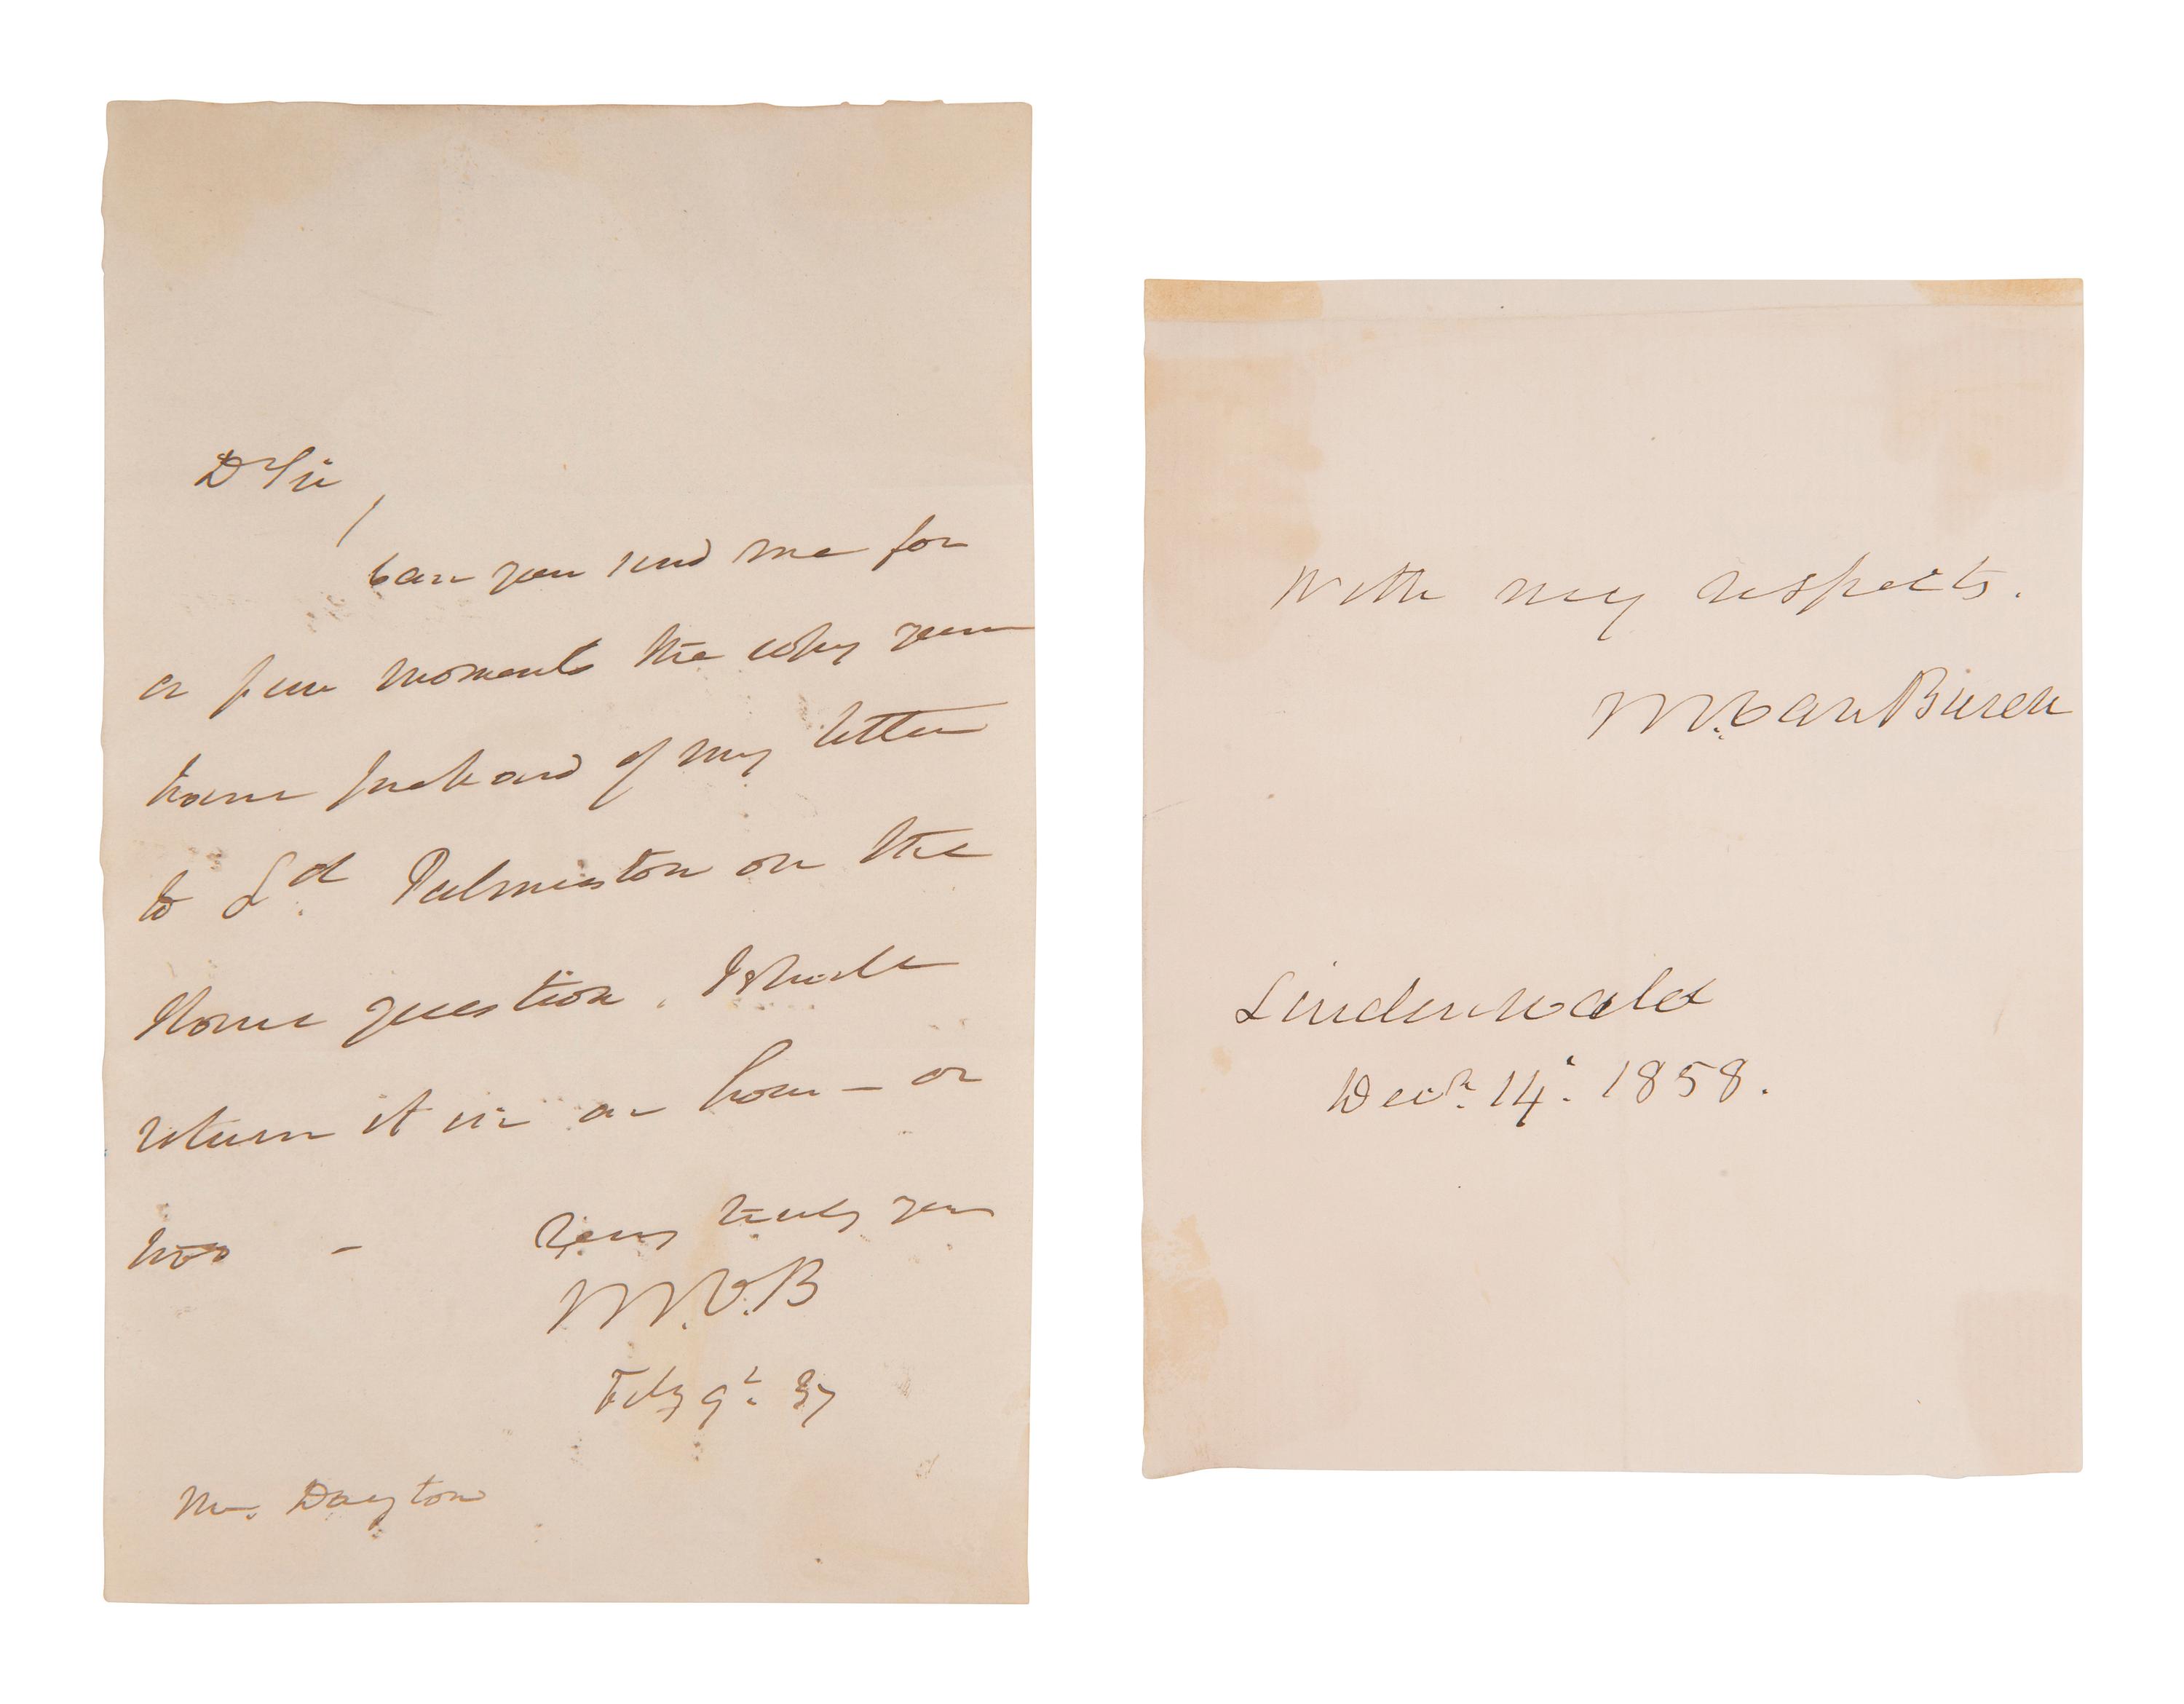 D Sir,
Can you send me for
a few moments the copy you
have of my letter
to Ld. Palmerston on the
question. I shall
return it in an hour — or
two — Very truly yours
M.V.B
Feby 9th. 37
Mr. Dayton
With my respects.
M. Van Buren
Lindenwald
Decr. 14. 1858.